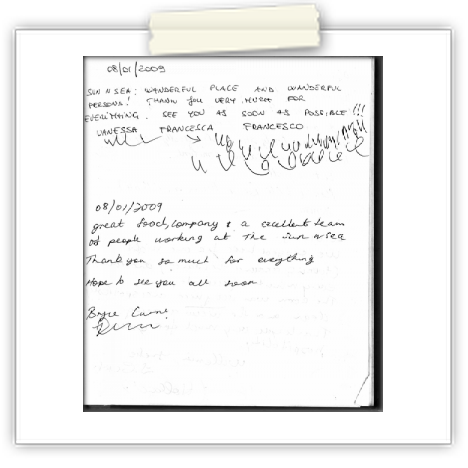 08/01/2009
SUN N SEA: WANDERFUL PLACE AND WANDERFUL
PERSONS! THANK YOU VERY MUCH FOR
EVERYTHING. SEE YOU AS SOON AS POSSIBLE!!!
VANESSA FRANCESCA FRANCESCO
08/01/2009
great food, company & a excellent team
of people working at The Sun n Sea
Thank you so much for everything
Hope to see you all soon
Bryce